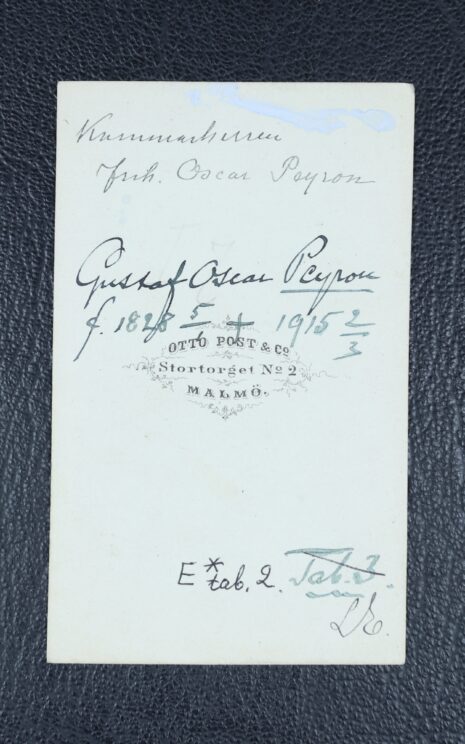 Kammarherren
Frih. Oscar Peyron
Gustaf Oscar Peyron
f. 1828 5/ + 1915 2/3
OTTO POST & Co
Stortorget No 2
MALMÖ.
E* tab. 2. Tab. 3.